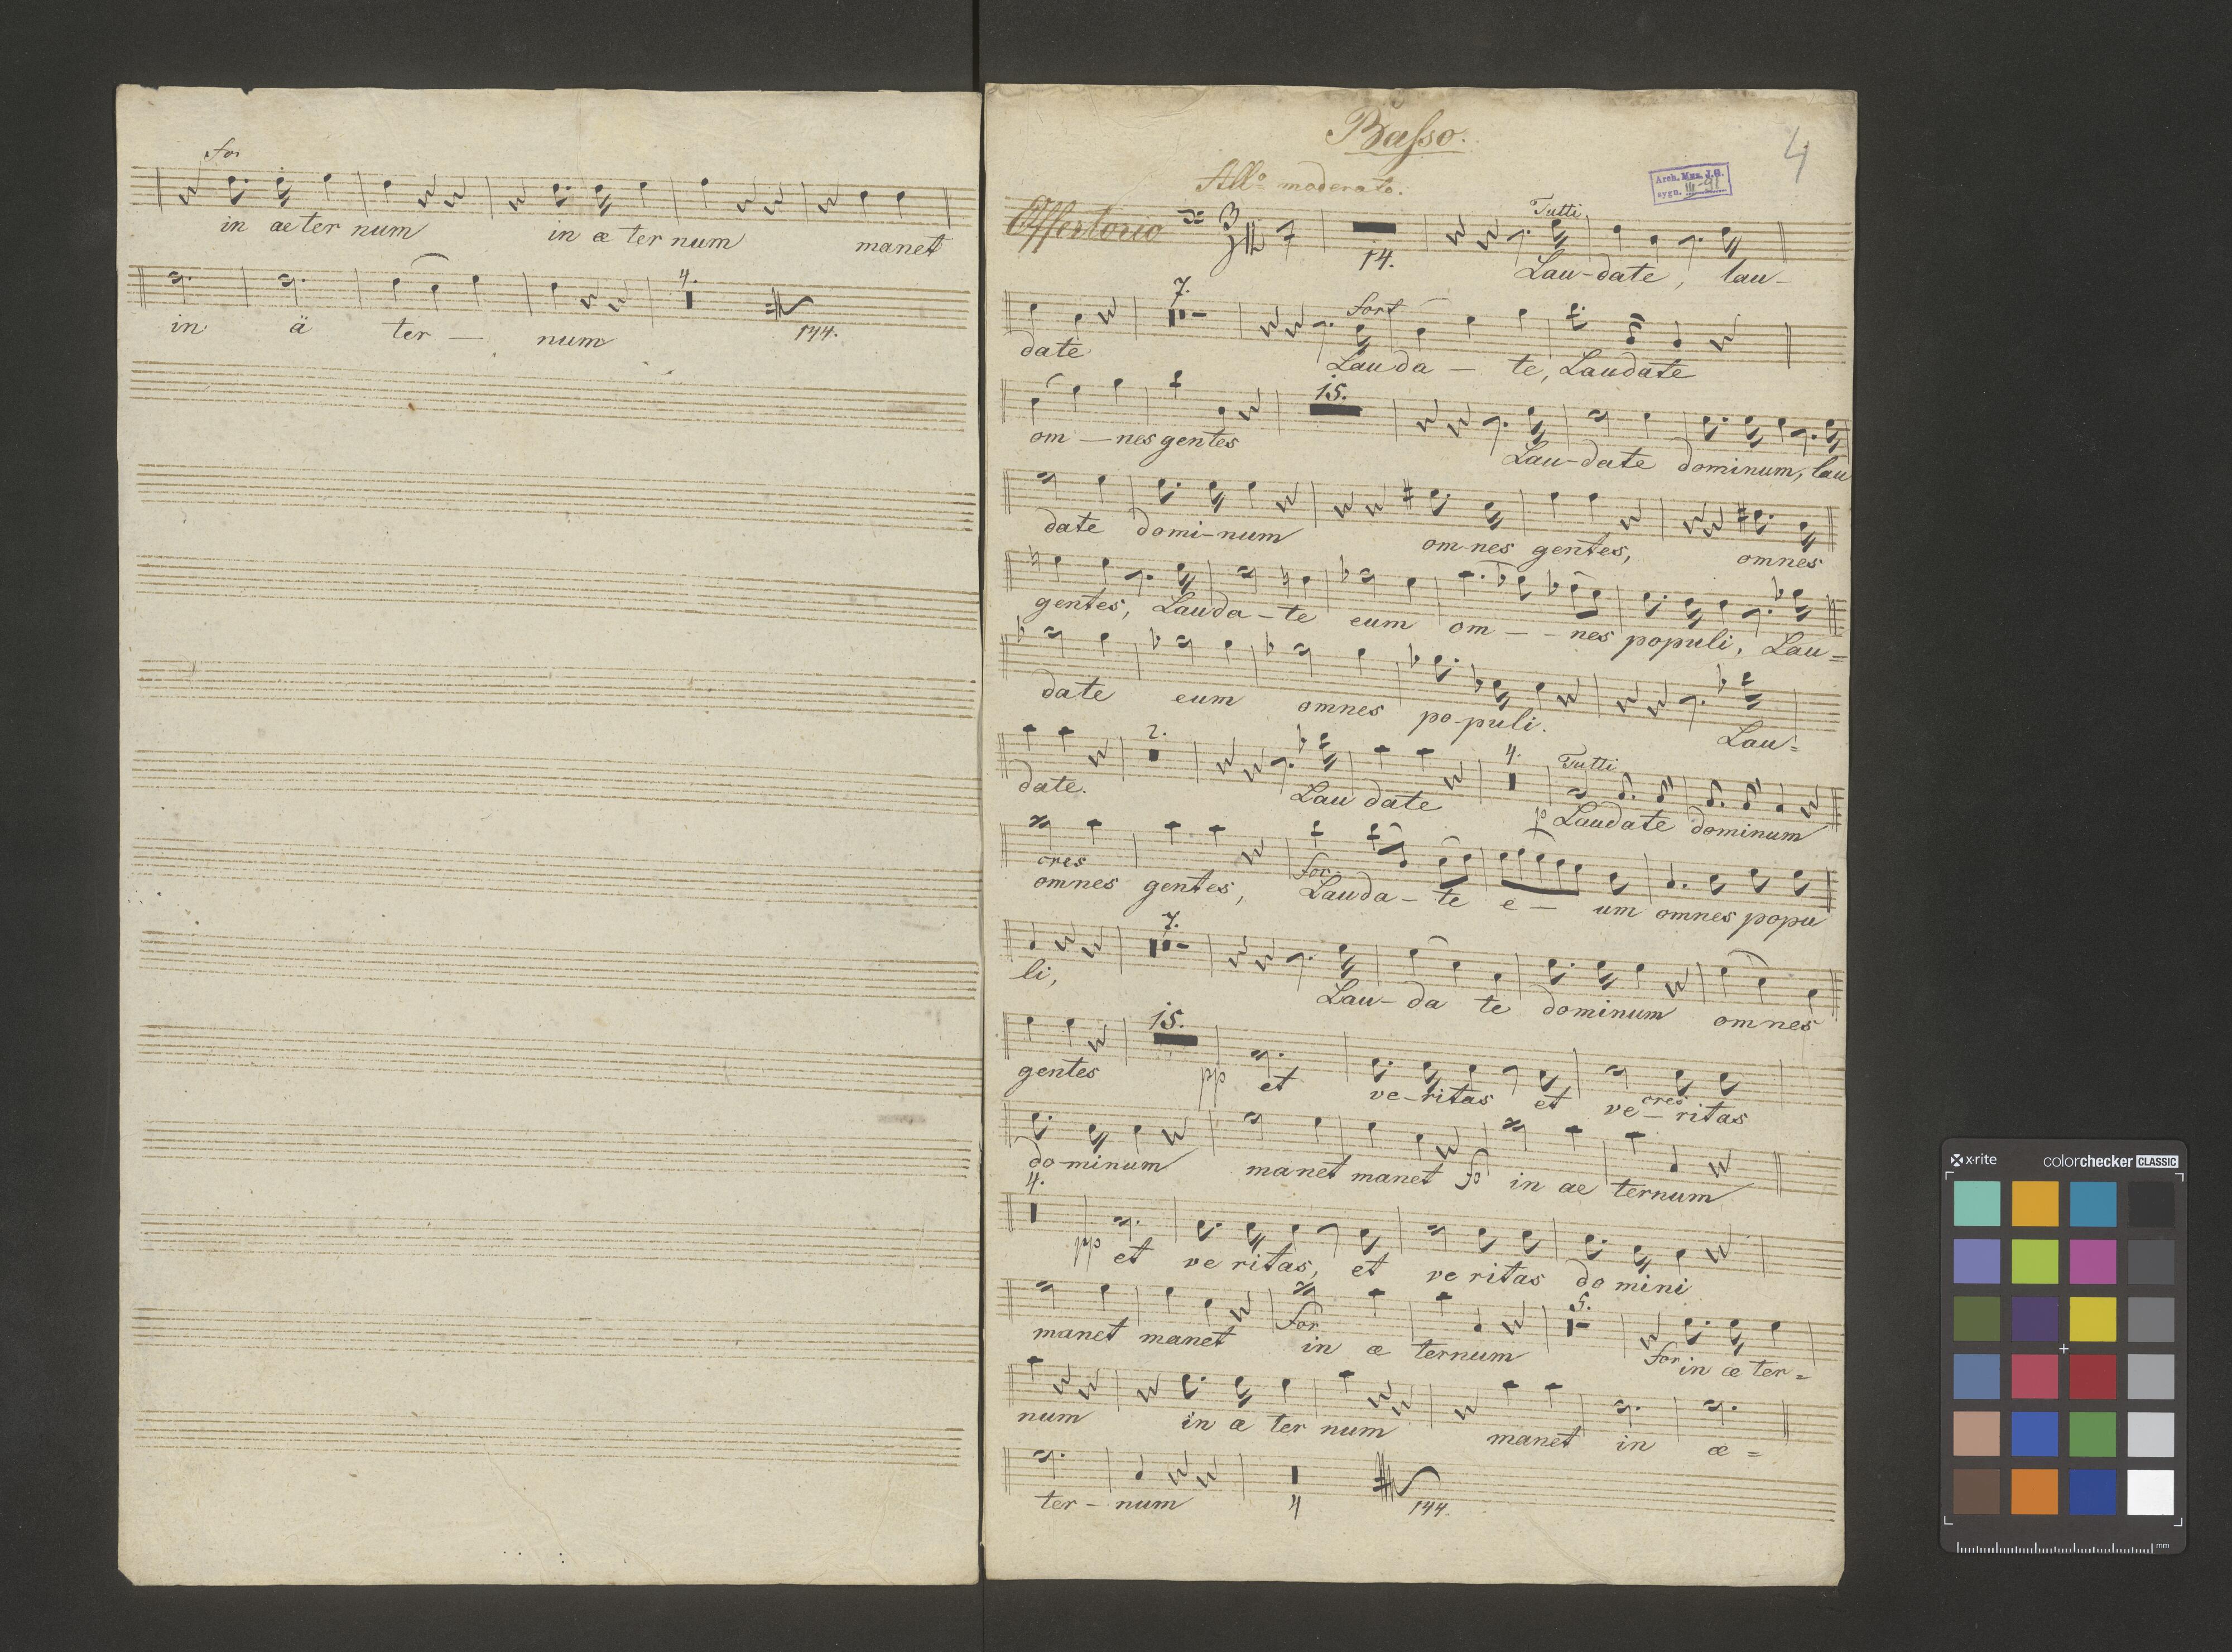 for
in aeter num in æ ter num manet
4.
in ä ter — num 144.
Baſso.
4
Allo moderato.
Arch. Muz. J.G.
sygn. III-91
Offertorio 3 Tutti
14. Lau-date, lau-
7. fort
date Lauda — te, Laudate
15.
om — nes gentes Lau-date dominum, lau
date domi-num om-nes gentes, omnes
gentes, Lauda-te eum om - - nes populi, Lau=
date eum omnes po-puli. Lau=
2. 4. Tutti
date. Lau date p Laudate dominum
cres for
omnes gentes, Lauda-te e — um omnes popu
7.
li, Lau-da te dominum omnes
15.
gentes pp et ve-ritas et ve-ritas
cres
do-minum manet manet fo in ae ternum
4.
pp et ve ritas, et ve ritas do mini
for 5.
manet manet in æ ternum for in æ ter=
num in æ ter num manet in æ=
ter-num 4 144.
x-rite colorchecker CLASSIC
mm